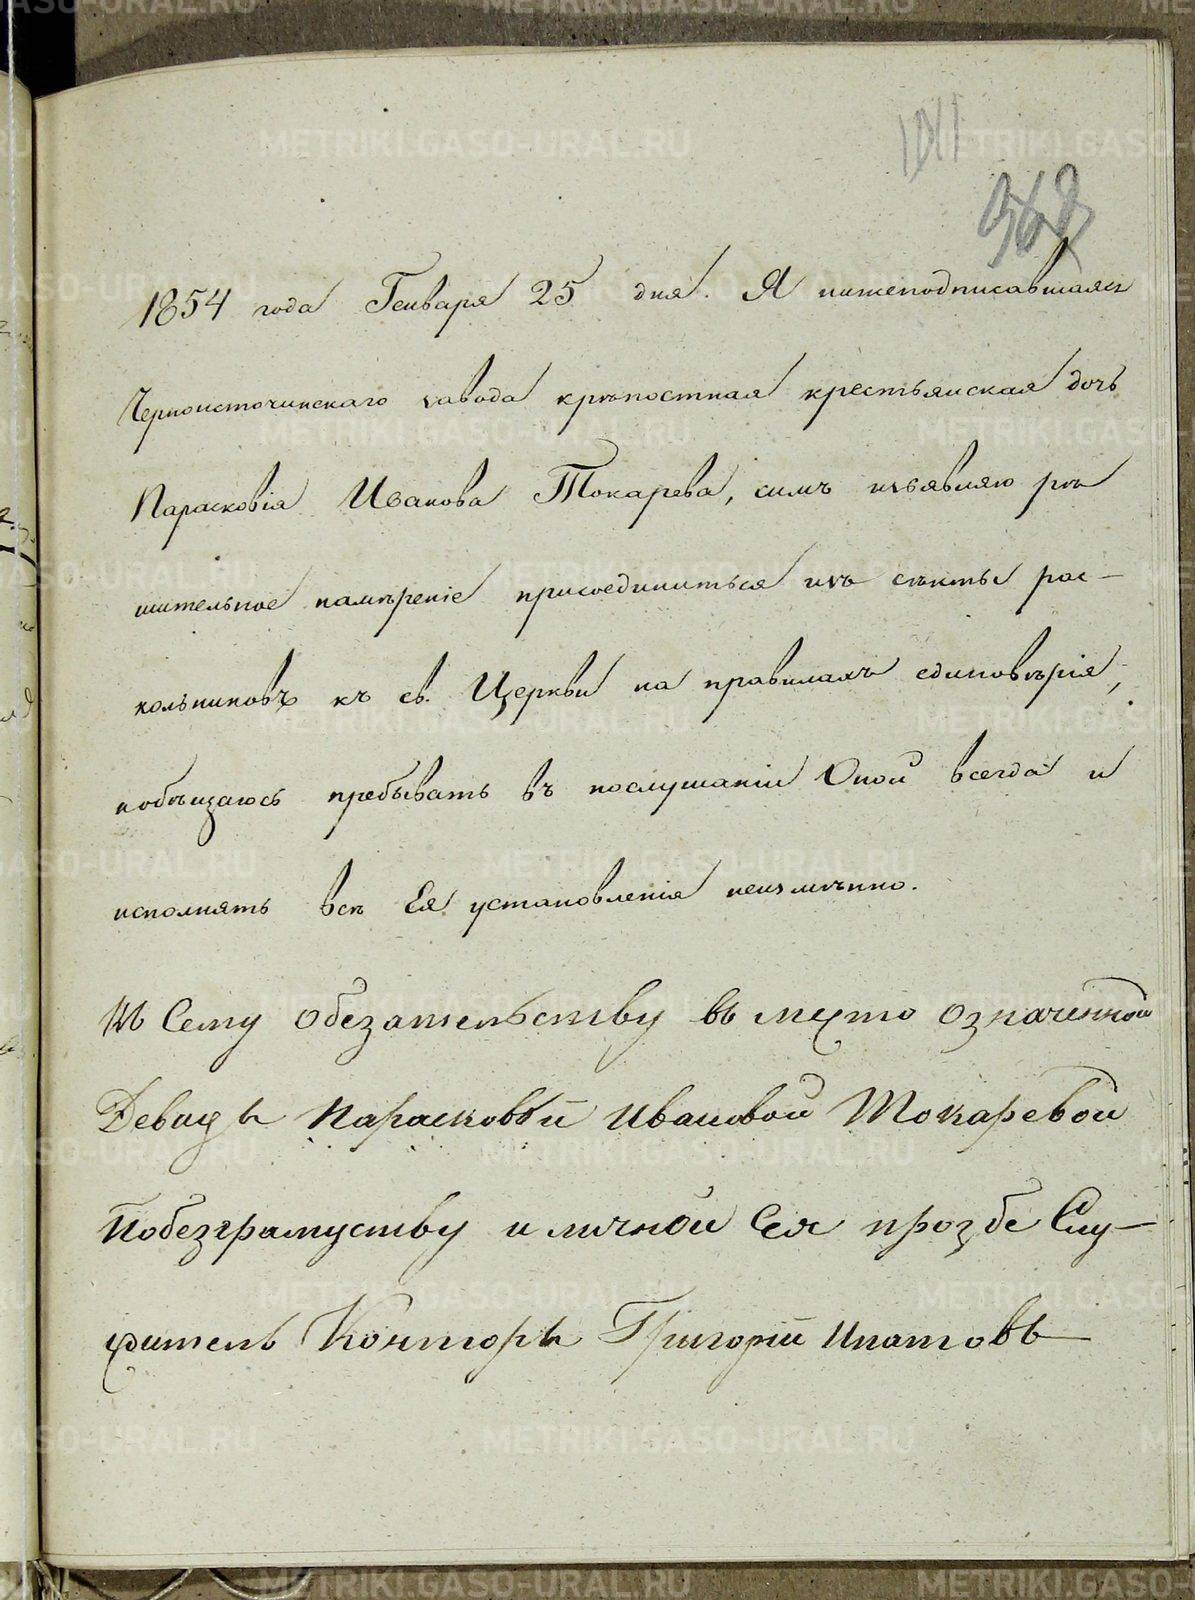 362
1854 года Генваря 25 дня. Я нижеподписавшаяся
Черноисточинскаго завода крѣпостная крестьянская дочь
Парасковія Иванова Токарева, симъ изъявляю рѣ
шительное намѣреніе присоединиться изъ секты рас-
кольниковъ къ св. Церкви на правилахъ единовѣрія,
и обѣщаюсь пребывать въ послушаніи Оной всегда и
исполнять всѣ Ея установленія неизмѣнно.
Къ Сему обезательству въ место означенной
Девицы Парасковьи Ивановой Токаревой
Побезграмуству и личной Еея прозбе Слу-
житель Конторы Григорій Ипатовъ